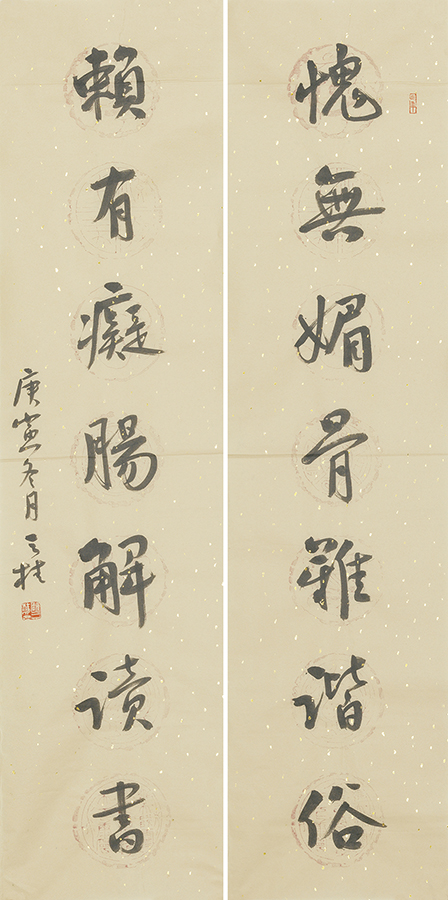 愧無媚骨難谐俗
賴有癡腸解读書
庚寅冬月